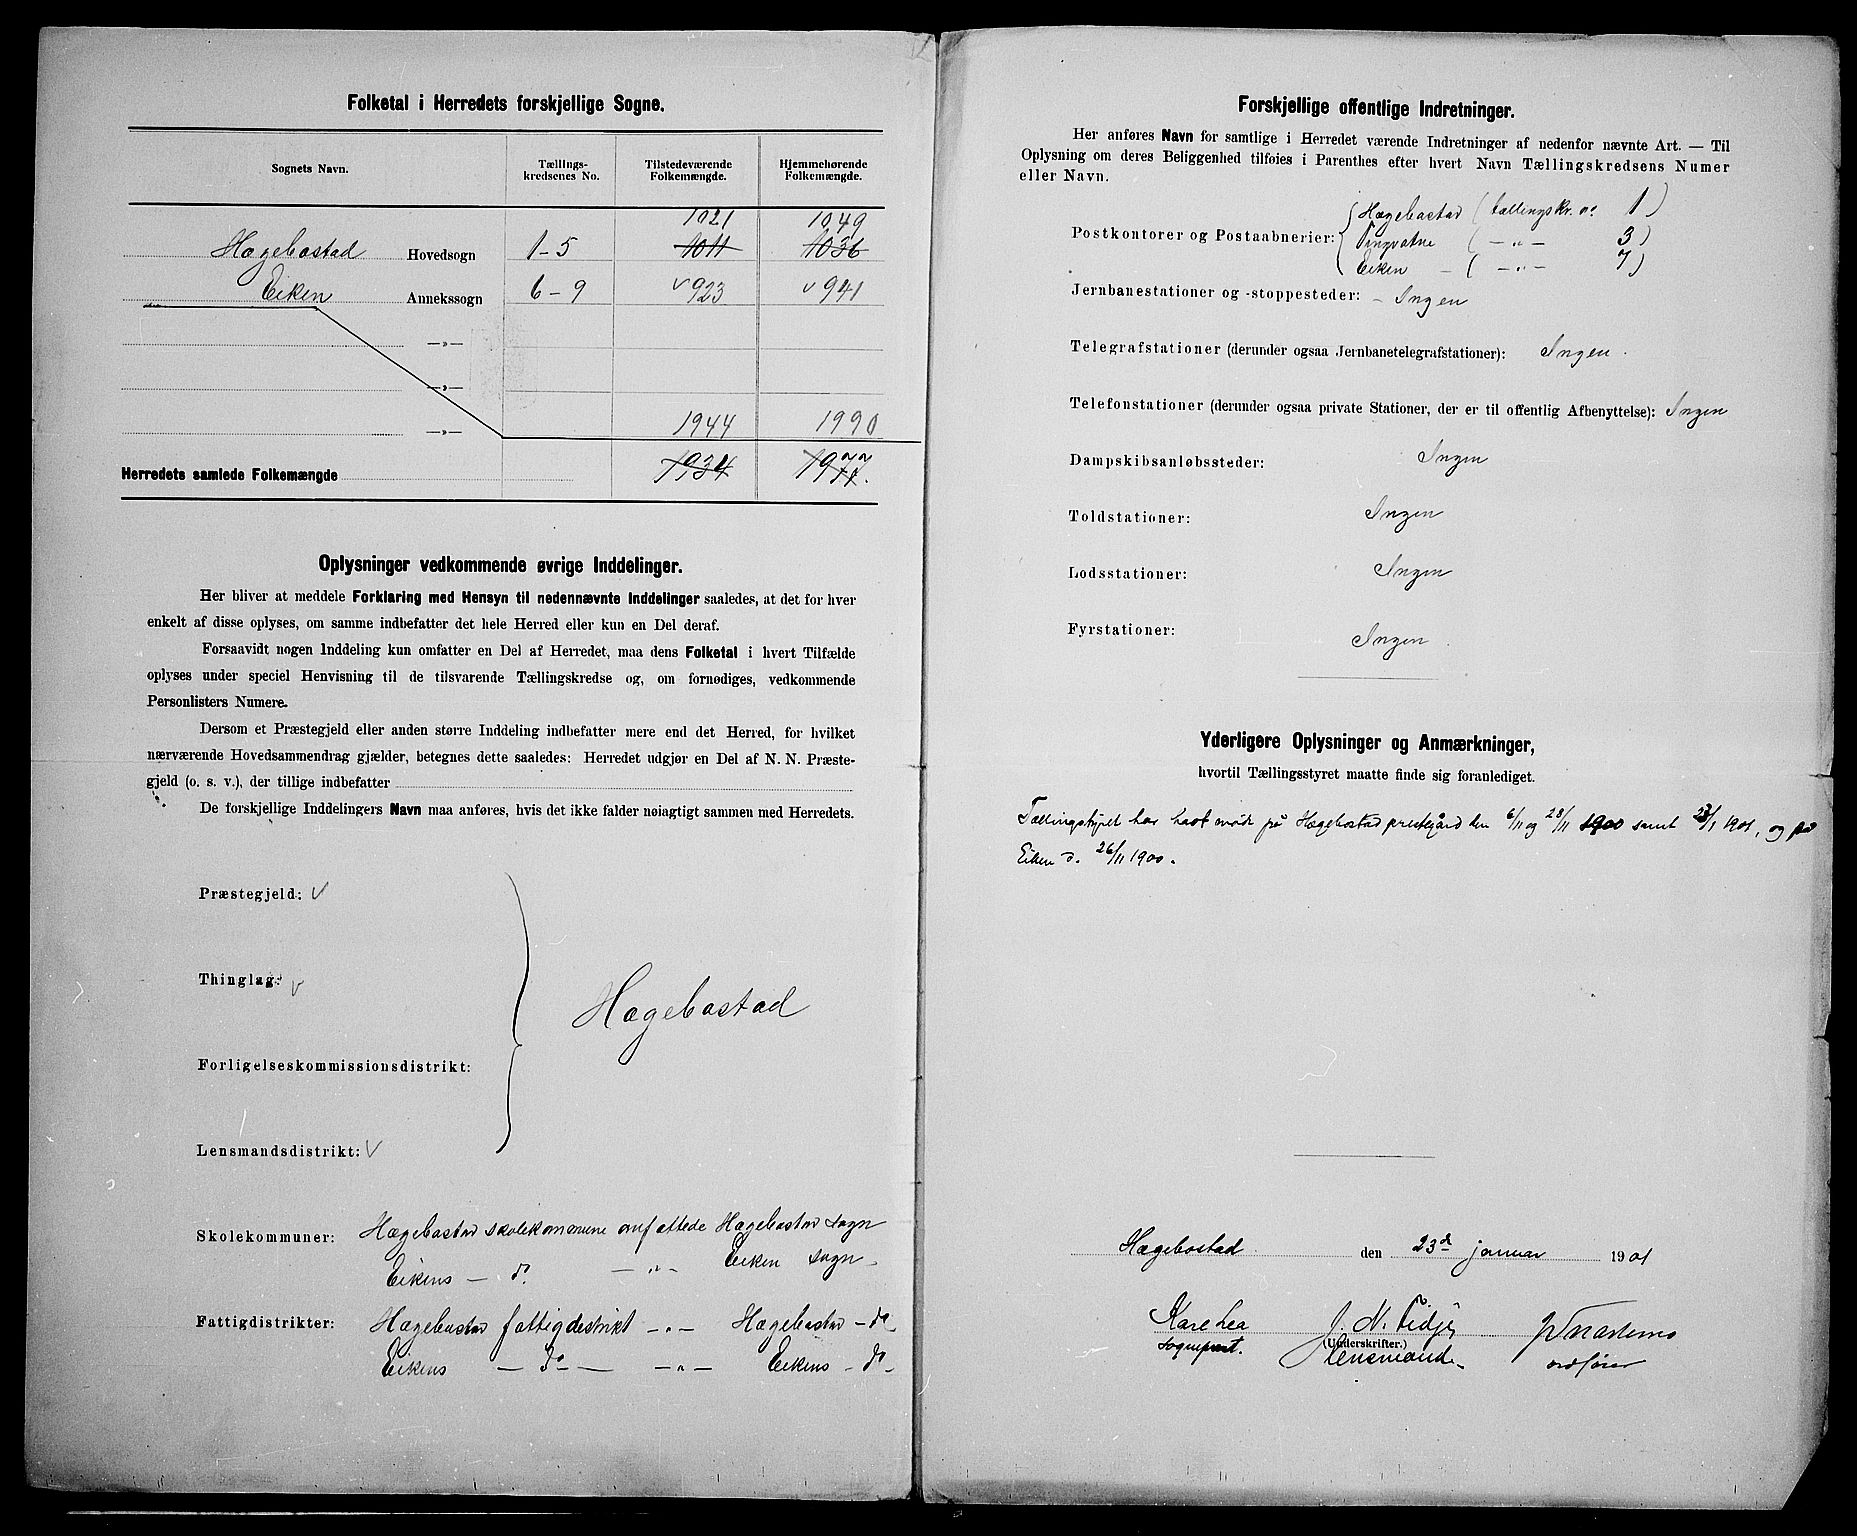 Folketal i Herredets forskjellige Sogne.
Sognets Navn. Tællings-kredsenes No. Tilstedeværende Folkemængde. Hjemmehørende Folkemængde.
1021 1049
Hægebostad Hovedsogn 1-5 1011 1036
Eiken Annekssogn 6-9 v 923 v 941
—»—
—»—
—»— 1944 1990
Herredets samlede Folkemængde 1934 1977.
Oplysninger vedkommende øvrige Inddelinger.
Her bliver at meddele Forklaring med Hensyn til nedennævnte Inddelinger saaledes, at det for hver
enkelt af disse oplyses, om samme indbefatter det hele Herred eller kun en Del deraf.
Forsaavidt nogen Inddeling kun omfatter en Del af Herredet, maa dens Folketal i hvert Tilfælde
oplyses under speciel Henvisning til de tilsvarende Tællingskredse og, om fornødiges, vedkommende
Personlisters Numere.
Dersom et Præstegjeld eller anden større Inddeling indbefatter mere end det Herred, for hvilket
nærværende Hovedsammendrag gjælder, betegnes dette saaledes: Herredet udgjør en Del af N. N. Præste-
gjeld (o. s. v.), der tillige indbefatter
De forskjellige Inddelingers Navn maa anføres, hvis det ikke falder nøiagtigt sammen med Herredets.
Præstegjeld: v
Thinglag: v
Hægebostad
Forligelseskommissionsdistrikt:
Lensmandsdistrikt: v
Skolekommuner: Hægebostad skolekommune omfattede Hægebostad sogn
Eikens — do. — „ — Eiken sogn
Fattigdistrikter: Hægebostad fattigdistrikt — „ — Hægebostad — do
Eikens — do — — „ — Eikens — do —
Forskjellige offentlige Indretninger.
Her anføres Navn for samtlige i Herredet værende Indretninger af nedenfor nævnte Art. — Til
Oplysning om deres Beliggenhed tilføies i Parenthes efter hvert Navn Tællingskredsens Numer
eller Navn.
Hægebostad (tællingskr. no 1)
Postkontorer og Postaabnerier: Tingvatne ( — „ — 3)
Eiken — ( — „ — 7)
Jernbanestationer og -stoppesteder: – Ingen
Telegrafstationer (derunder ogsaa Jernbanetelegrafstationer): Ingen.
Telefonstationer (derunder ogsaa private Stationer, der er til offentlig Afbenyttelse): Ingen
Dampskibsanløbssteder: Ingen
Toldstationer: Ingen
Lodsstationer: Ingen
Fyrstationer: Ingen.
Yderligere Oplysninger og Anmærkninger,
hvortil Tællingsstyret maatte finde sig foranlediget.
Tællingsstyret har havt møde på Hægebostad prestegård den 6/11 og 28/11 1900 samt 23/1 1901, og på
Eiken d. 26/11 1900.
Hægebostad den 23d januar 1901
Kare Lea J. N. Tidje
sogneprest. (Underskrifter.) lensmand. ordfører